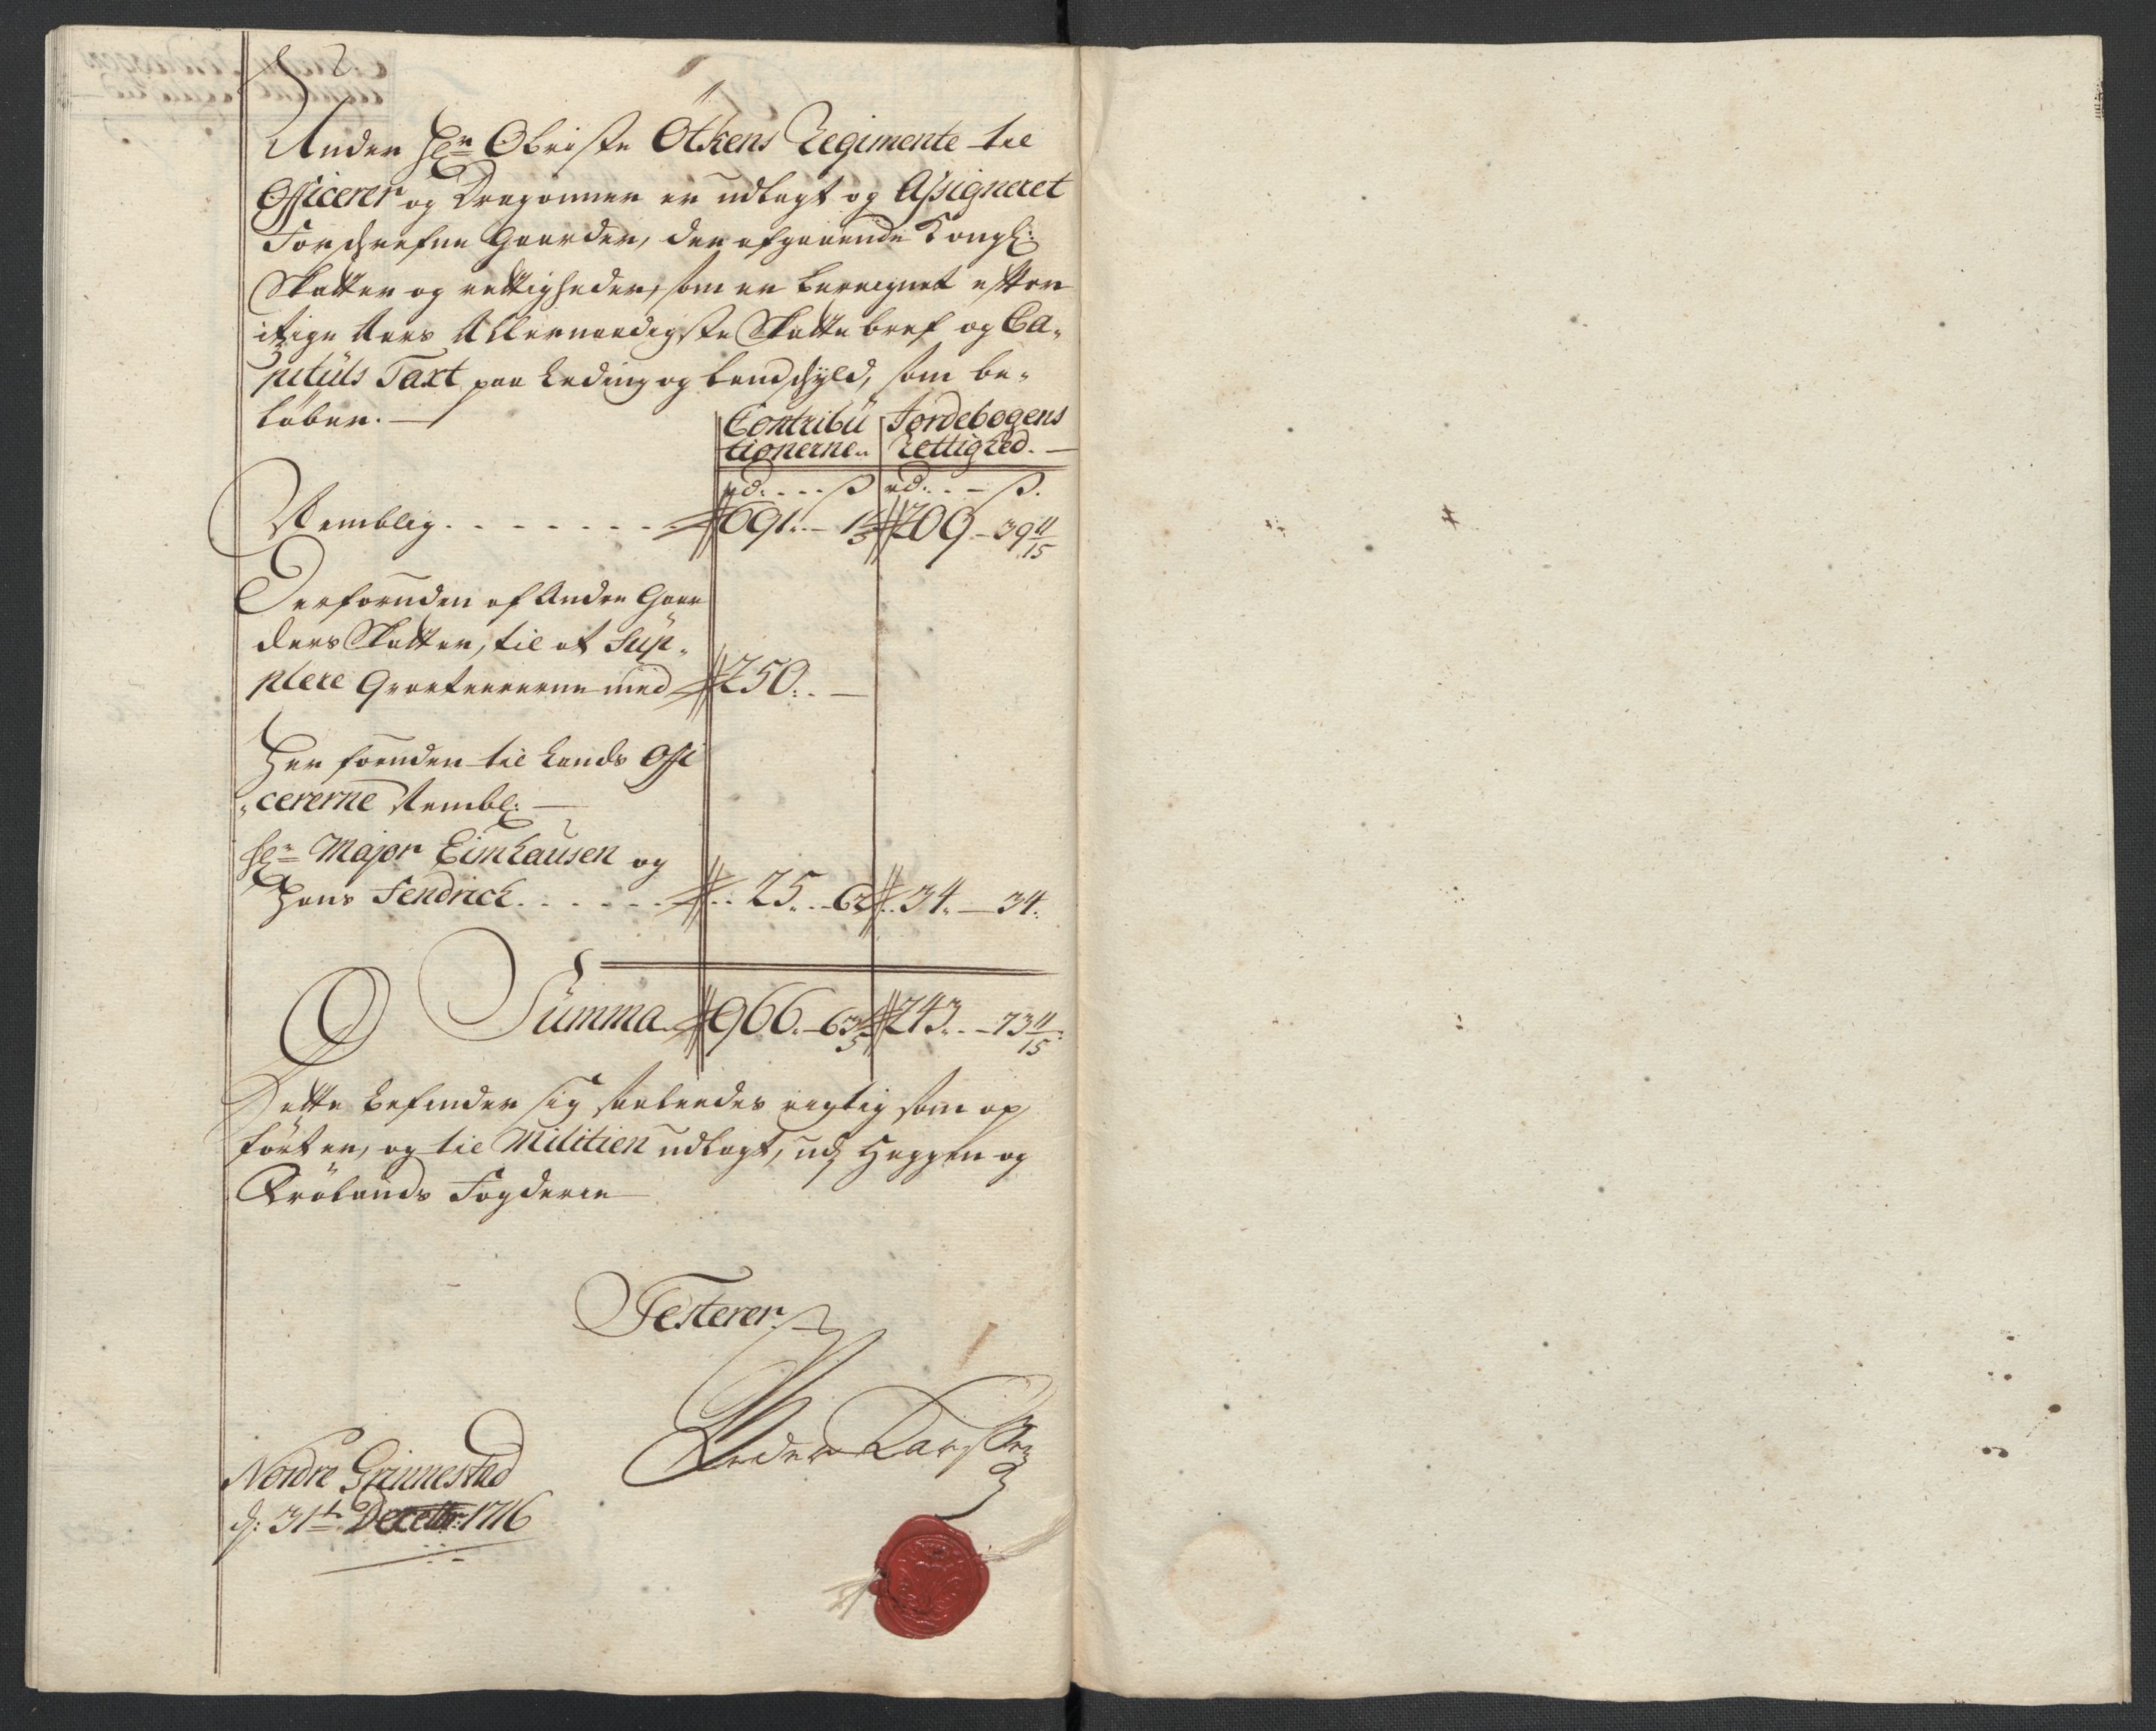 Under Hr Obriste Ötkens Regimente til
Officerer og Dragonner er udlagt og Assigneret
Forschrefne Gaarder, der afgaaende Kongl:
Skatter og rettigheder, som er bereignet efter
itzige Aars Allernaadigste Skattebref og Ca-
pituls Taxt paa Leding og Landschyld, som be-
löber.
Contribu
tionerne
Jordebogens
Rettighed.
rd. ß rd. ß.
Nemblig 691 1 209 39 11/15
Derforuden af Andre Gaar
ders Skatter, til at Sup-
plere Qvarteererne med 250
Her foruden til Lands Offi
cererne Nembl:
Hr Major Eimhausen og
Hans Fendrich 25 62 34 34
Summa 966 63 243 73 11/15
Dette befinder sig saaledes rigtig som op
fört er, og til Militien udlagt, udj Heggen og
Frölands Fogderie
Testerer
Peder Karssen
Nordre Grinnestad
d: 31t Decembr: 1716